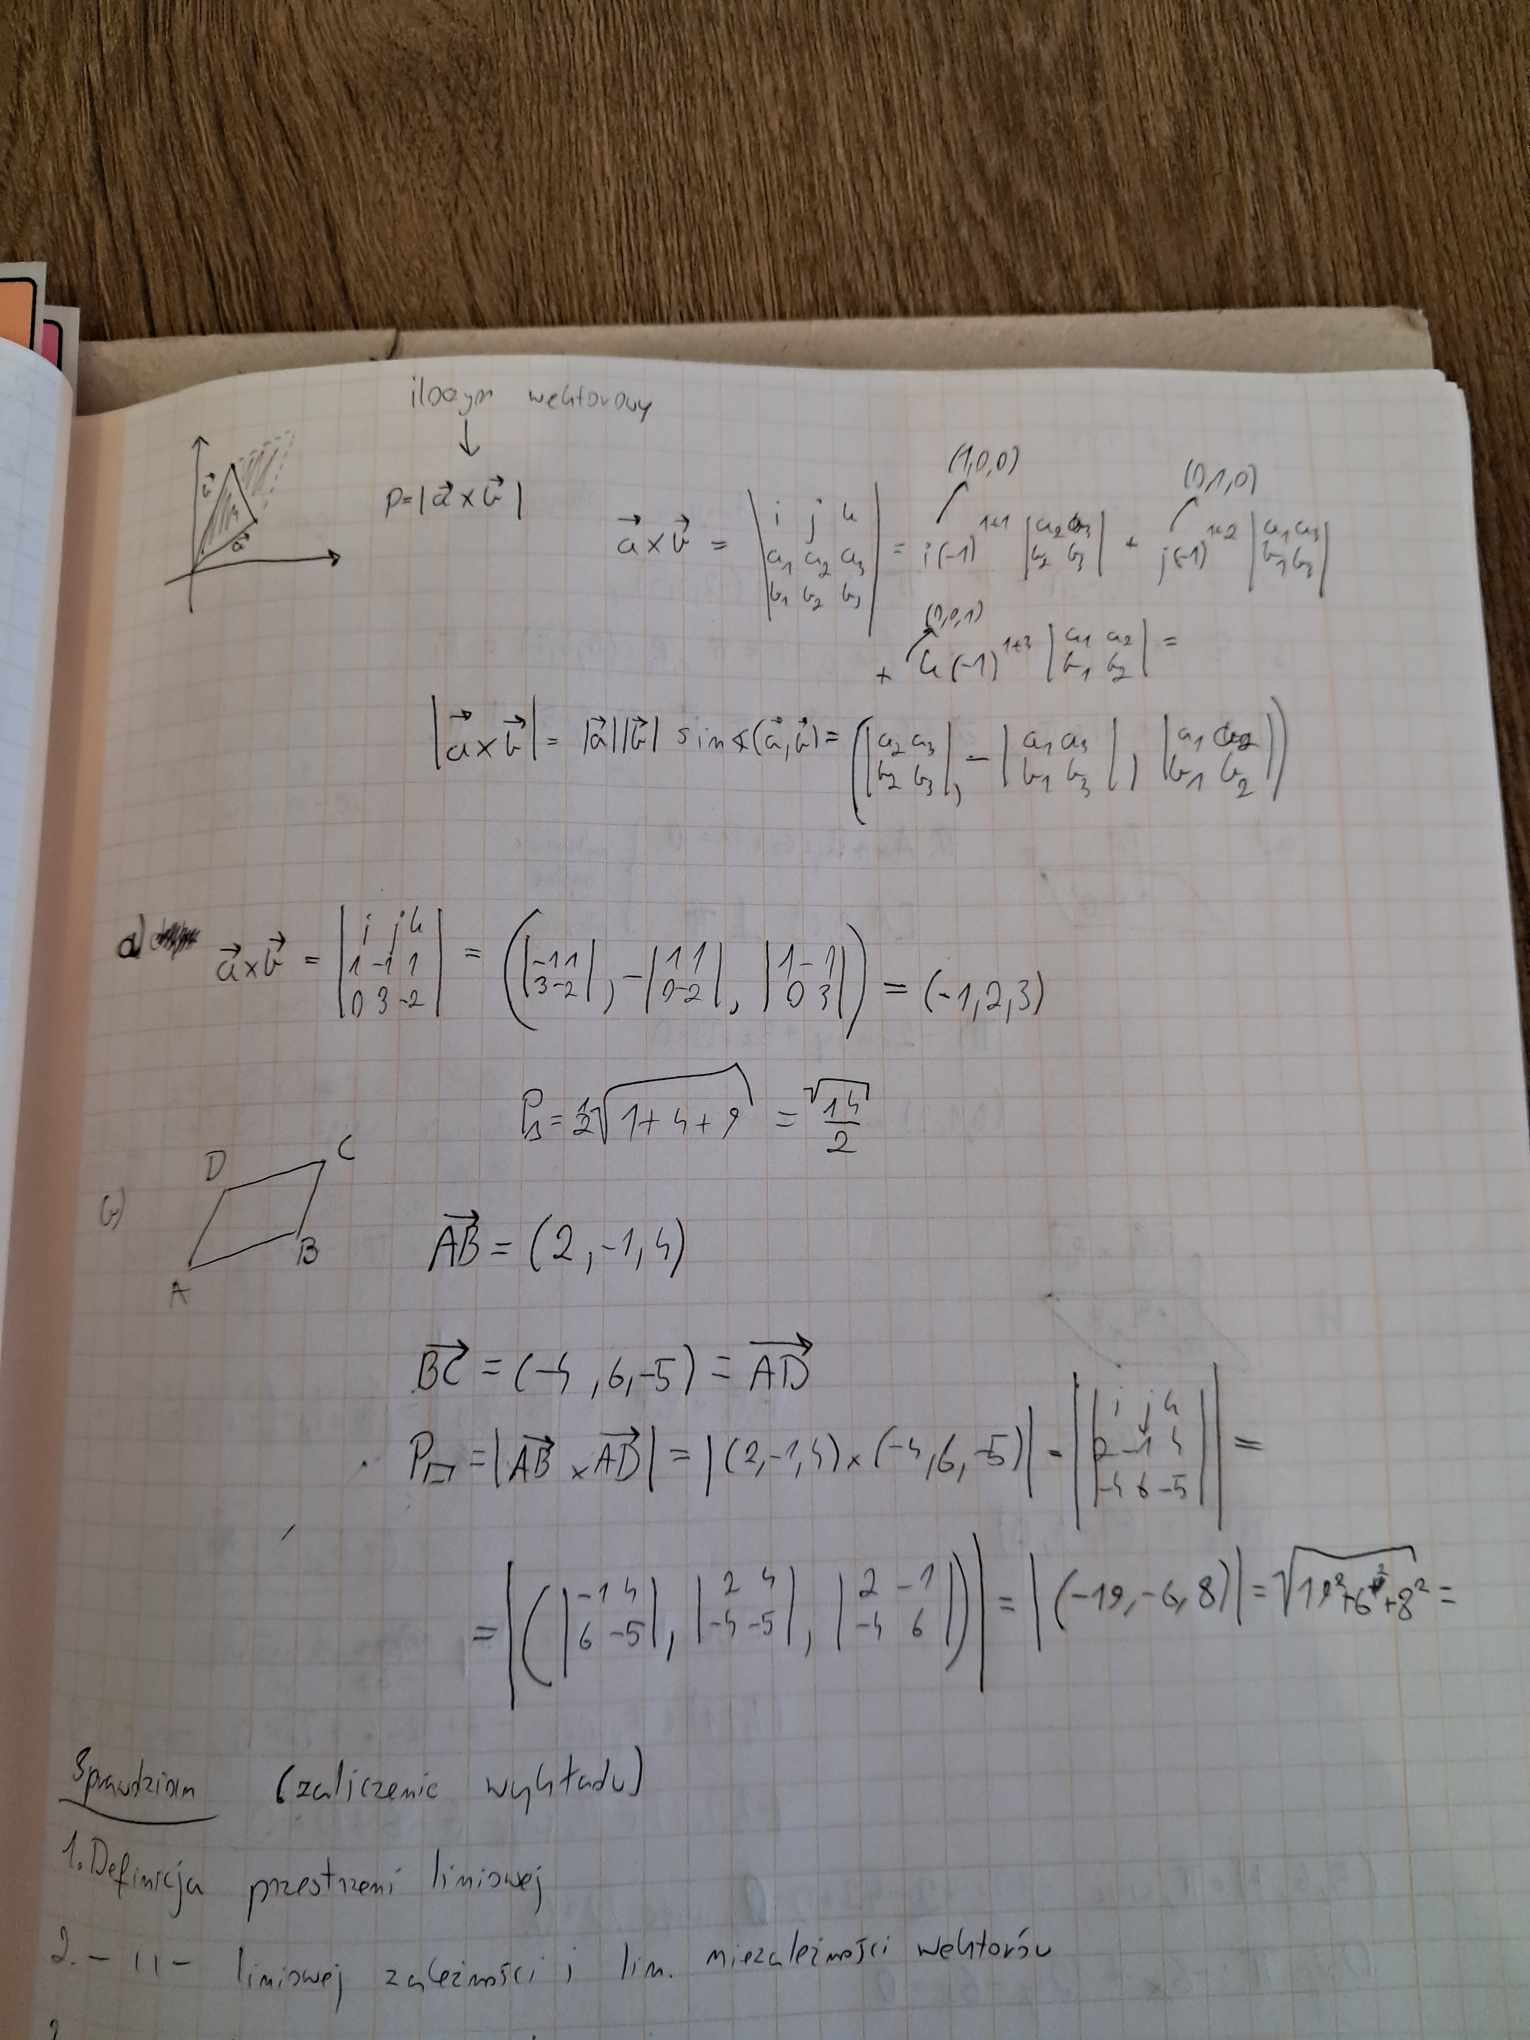 iloczyn wektorowy
↓
P=|a⃗ × b⃗|
b⃗
a⃗
(1,0,0)
(0,1,0)
a⃗ × b⃗ = |i j k; a₁ a₂ a₃; b₁ b₂ b₃| = i(-1)¹⁺¹ |a₂ a₃; b₂ b₃| + j(-1)¹⁺² |a₁ a₃; b₁ b₃|
(0,0,1)
+ k(-1)¹⁺³ |a₁ a₂; b₁ b₂| =
|a⃗ × b⃗| = |a⃗||b⃗| sin∢(a⃗,b⃗) = (|a₂ a₃; b₂ b₃|, -|a₁ a₃; b₁ b₃|, |a₁ a₂; b₁ b₂|)
a) a⃗ × b⃗ = |i j k; 1 -1 1; 0 3 -2| = (|-1 1; 3 -2|, -|1 1; 0 -2|, |1 -1; 0 3|) = (-1,2,3)
P△ = ½√(1+4+9) = √14/2
b) D C
A B
AB⃗ = (2,-1,4)
BC⃗ = (-4,6,-5) = AD⃗
P▱ = |AB⃗ × AD⃗| = |(2,-1,4)×(-4,6,-5)| = ||i j k; 2 -1 4; -4 6 -5|| =
= |(|-1 4; 6 -5|, |2 4; -4 -5|, |2 -1; -4 6|)| = |(-19,-6,8)| = √(19²+6²+8²) =
Sprawdzian (zaliczenie wykładu)
1. Definicja przestrzeni liniowej
2. - 11 - liniowej zależności i lin. niezależności wektorów